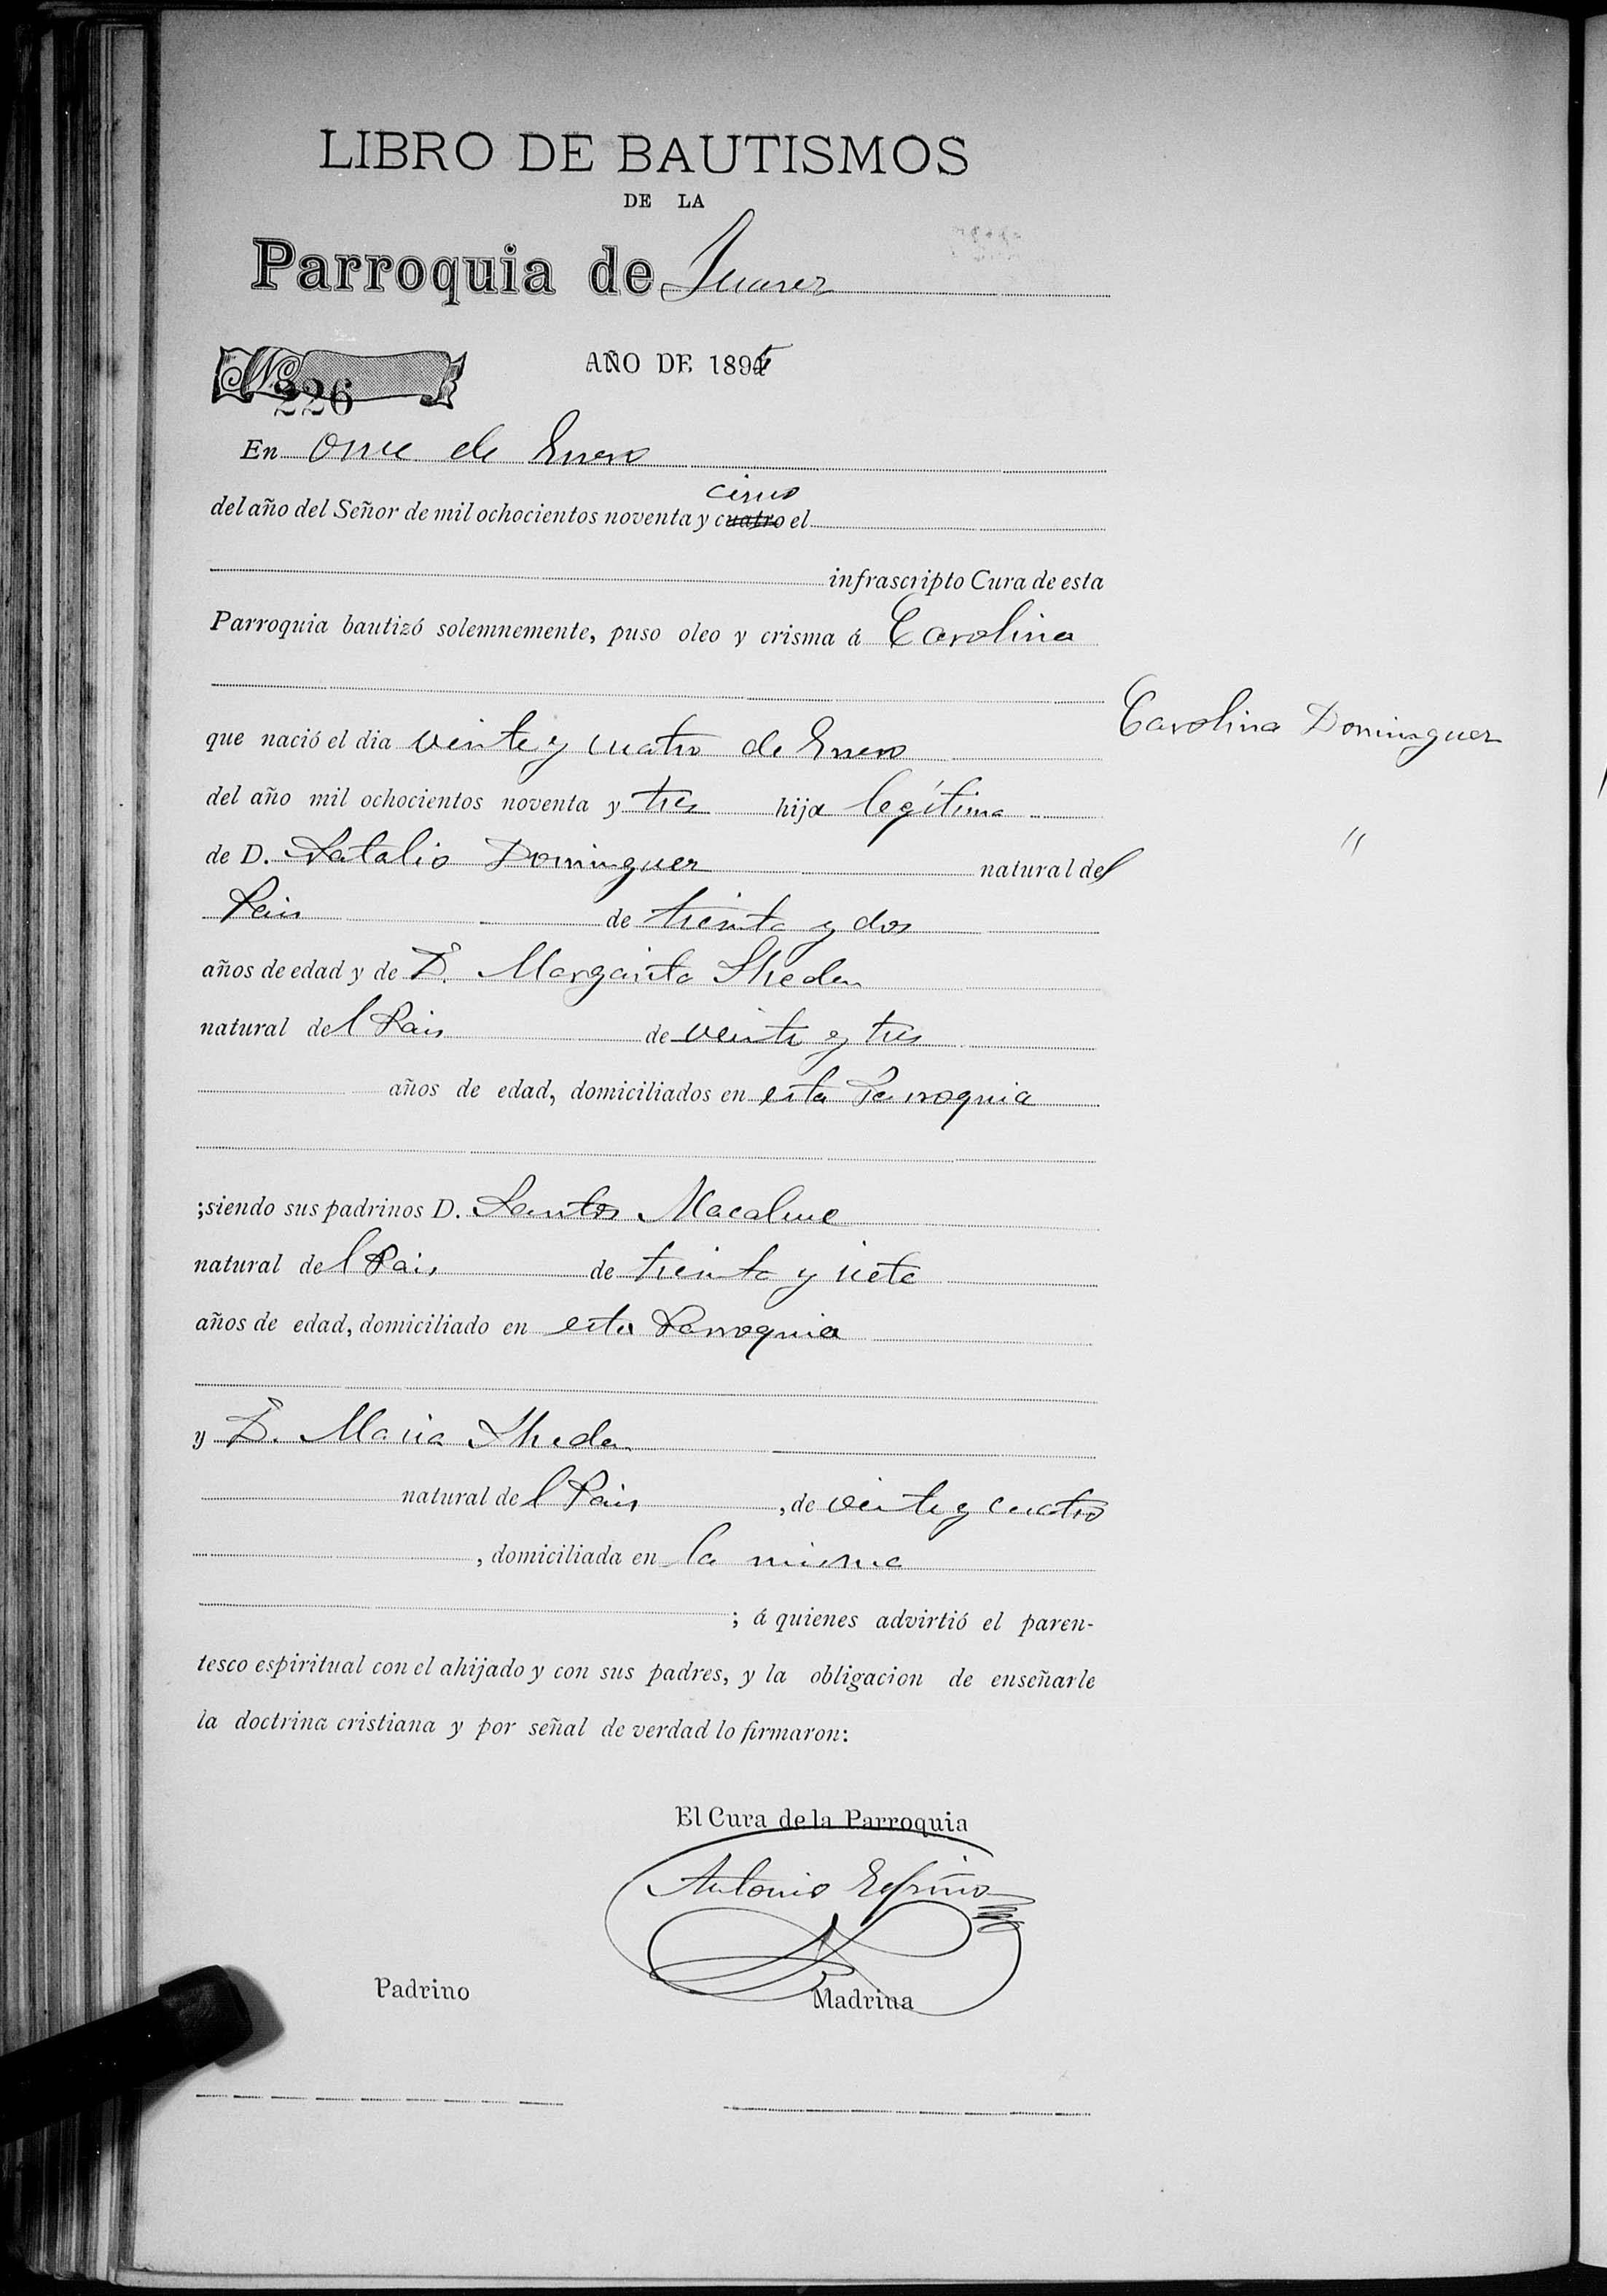 LIBRO DE BAUTISMOS
DE LA
Parroquia de Juarez
No 226
AÑO DE 1895
En Once de Enero
cinco
del año del Señor de mil ochocientos noventa y cuatro el
infrascripto Cura de esta
Parroquia bautizó solemnemente, puso oleo y crisma á Carolina
Carolina Dominguez
que nació el dia veinte y cuatro de Enero
del año mil ochocientos noventa y tres hija legítima
"
de D. Natalio Dominguez natural del
Pais de treinta y dos
años de edad y de D. Margarita Sheden
natural del Pais de veinte y tres
años de edad, domiciliados en esta Parroquia
;siendo sus padrinos D. Santos
natural del Pais de treinta y siete
años de edad, domiciliado en esta Parroquia
y D. Maria Sheden
natural del Pais, de veinte y cuatro
, domiciliada en la misma
; á quienes advirtió el paren-
tesco espiritual con el ahijado y con sus padres, y la obligacion de enseñarle
la doctrina cristiana y por señal de verdad lo firmaron:
El Cura de la Parroquia
Antonio Espiño
Padrino
Madrina